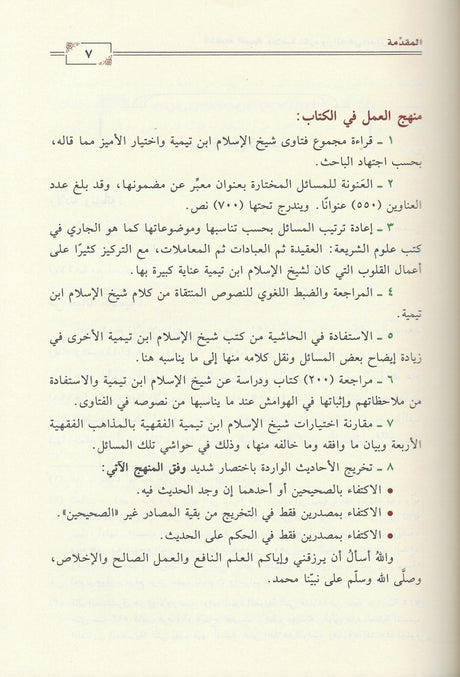 المقدّمة
٧
منهج العمل في الكتاب:
١ ـ قراءة مجموع فتاوى شيخ الإسلام ابن تيمية واختيار الأميز مما قاله،
بحسب اجتهاد الباحث.
٢ ـ العَنونة للمسائل المختارة بعنوان معبِّر عن مضمونها، وقد بلغ عدد
العناوين (٥٥٠) عنوانًا. ويندرج تحتها (٧٠٠) نص.
٣ ـ إعادة ترتيب المسائل بحسب تناسبها وموضوعاتها كما هو الجاري في
كتب علوم الشريعة: العقيدة ثم العبادات ثم المعاملات، مع التركيز كثيرًا على
أعمال القلوب التي كان لشيخ الإسلام ابن تيمية عناية كبيرة بها.
٤ ـ المراجعة والضبط اللغوي للنصوص المنتقاة من كلام شيخ الإسلام ابن
تيمية.
٥ ـ الاستفادة في الحاشية من كتب شيخ الإسلام ابن تيمية الأخرى في
زيادة إيضاح بعض المسائل ونقل كلامه منها إلى ما يناسبه هنا.
٦ ـ مراجعة (٢٠٠) كتاب ودراسة عن شيخ الإسلام ابن تيمية والاستفادة
من ملاحظاتهم وإثباتها في الهوامش عند ما يناسبها من نصوصه في الفتاوى.
٧ ـ مقارنة اختيارات شيخ الإسلام ابن تيمية الفقهية بالمذاهب الفقهية
الأربعة وبيان ما وافقه وما خالفه منها، وذلك في حواشي تلك المسائل.
٨ ـ تخريج الأحاديث الواردة باختصار شديد وفق المنهج الآتي:
• الاكتفاء بالصحيحين أو أحدهما إن وجد الحديث فيه.
• الاكتفاء بمصدرين فقط في التخريج من بقية المصادر غير «الصحيحين».
• الاكتفاء بمصدرين فقط في الحكم على الحديث.
واللهُ أسألُ أن يرزقني وإياكم العلم النافع والعمل الصالح والإخلاص،
وصلَّى الله وسلّم على نبيّنا محمد.